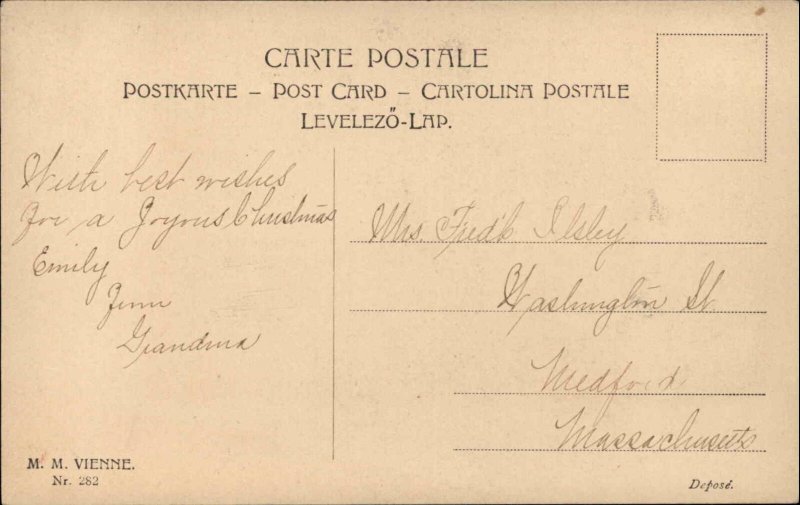 CARTE POSTALE
POSTKARTE – POST CARD – CARTOLINA POSTALE
LEVELEZŐ-LAP.
With best wishes
for a Joyous Christmas
Emily
from
Grandma
Mrs Fred'k Ilsley
Washington St
Medford
Massachusetts
M. M. VIENNE.
Nr. 282
Deposé.